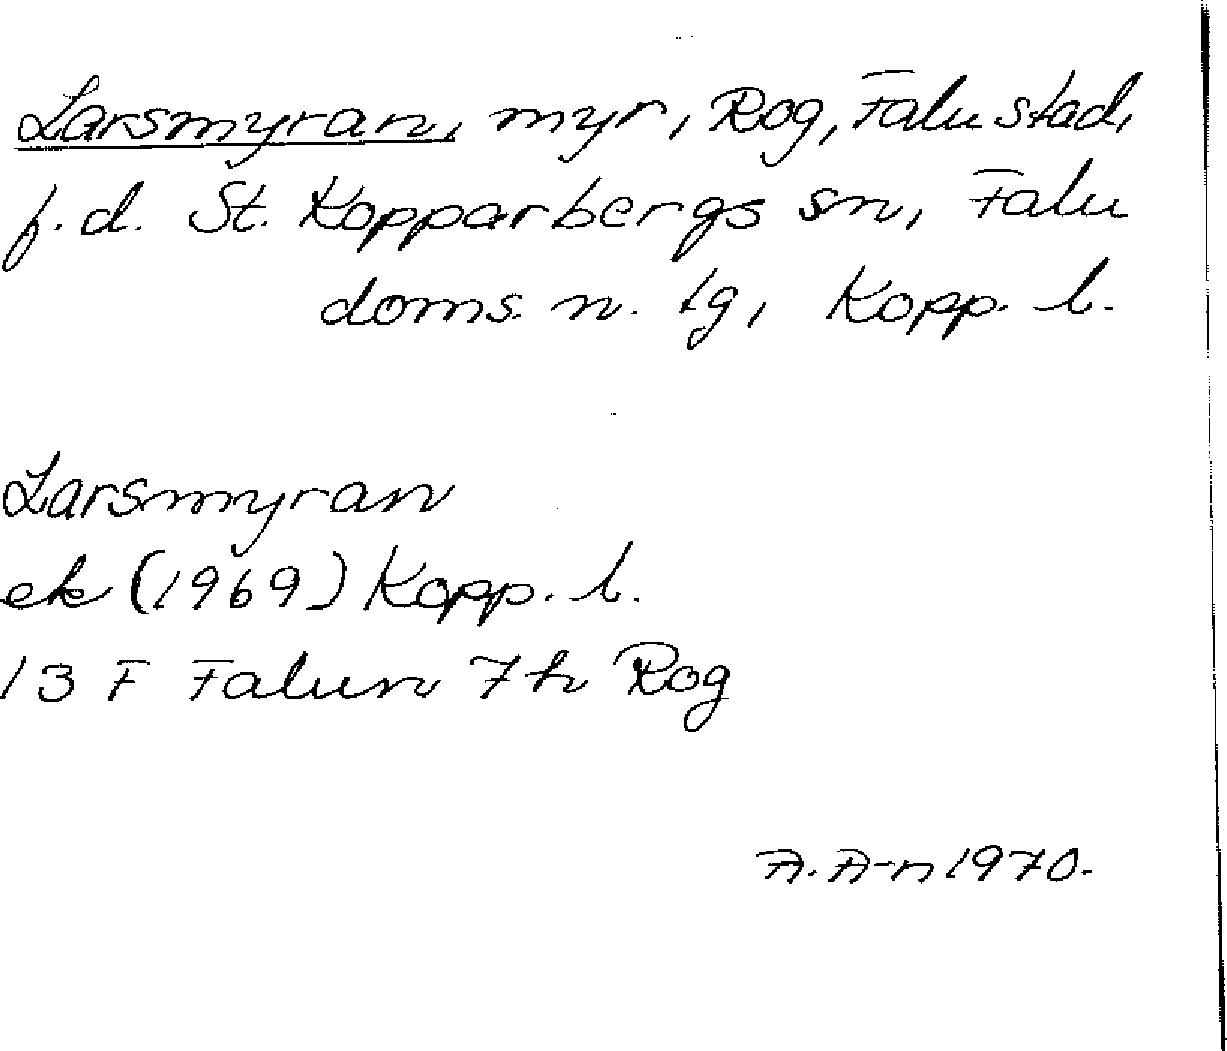 Larsmyran, myr, Rog, Falu stad,
f.d. St. Kopparbergs sn, Falu
doms. n. tg, Kopp. l.
Larsmyran
ek (1969) Kopp. l.
13 F Falun 7 h Rog
A. A-n 1970.